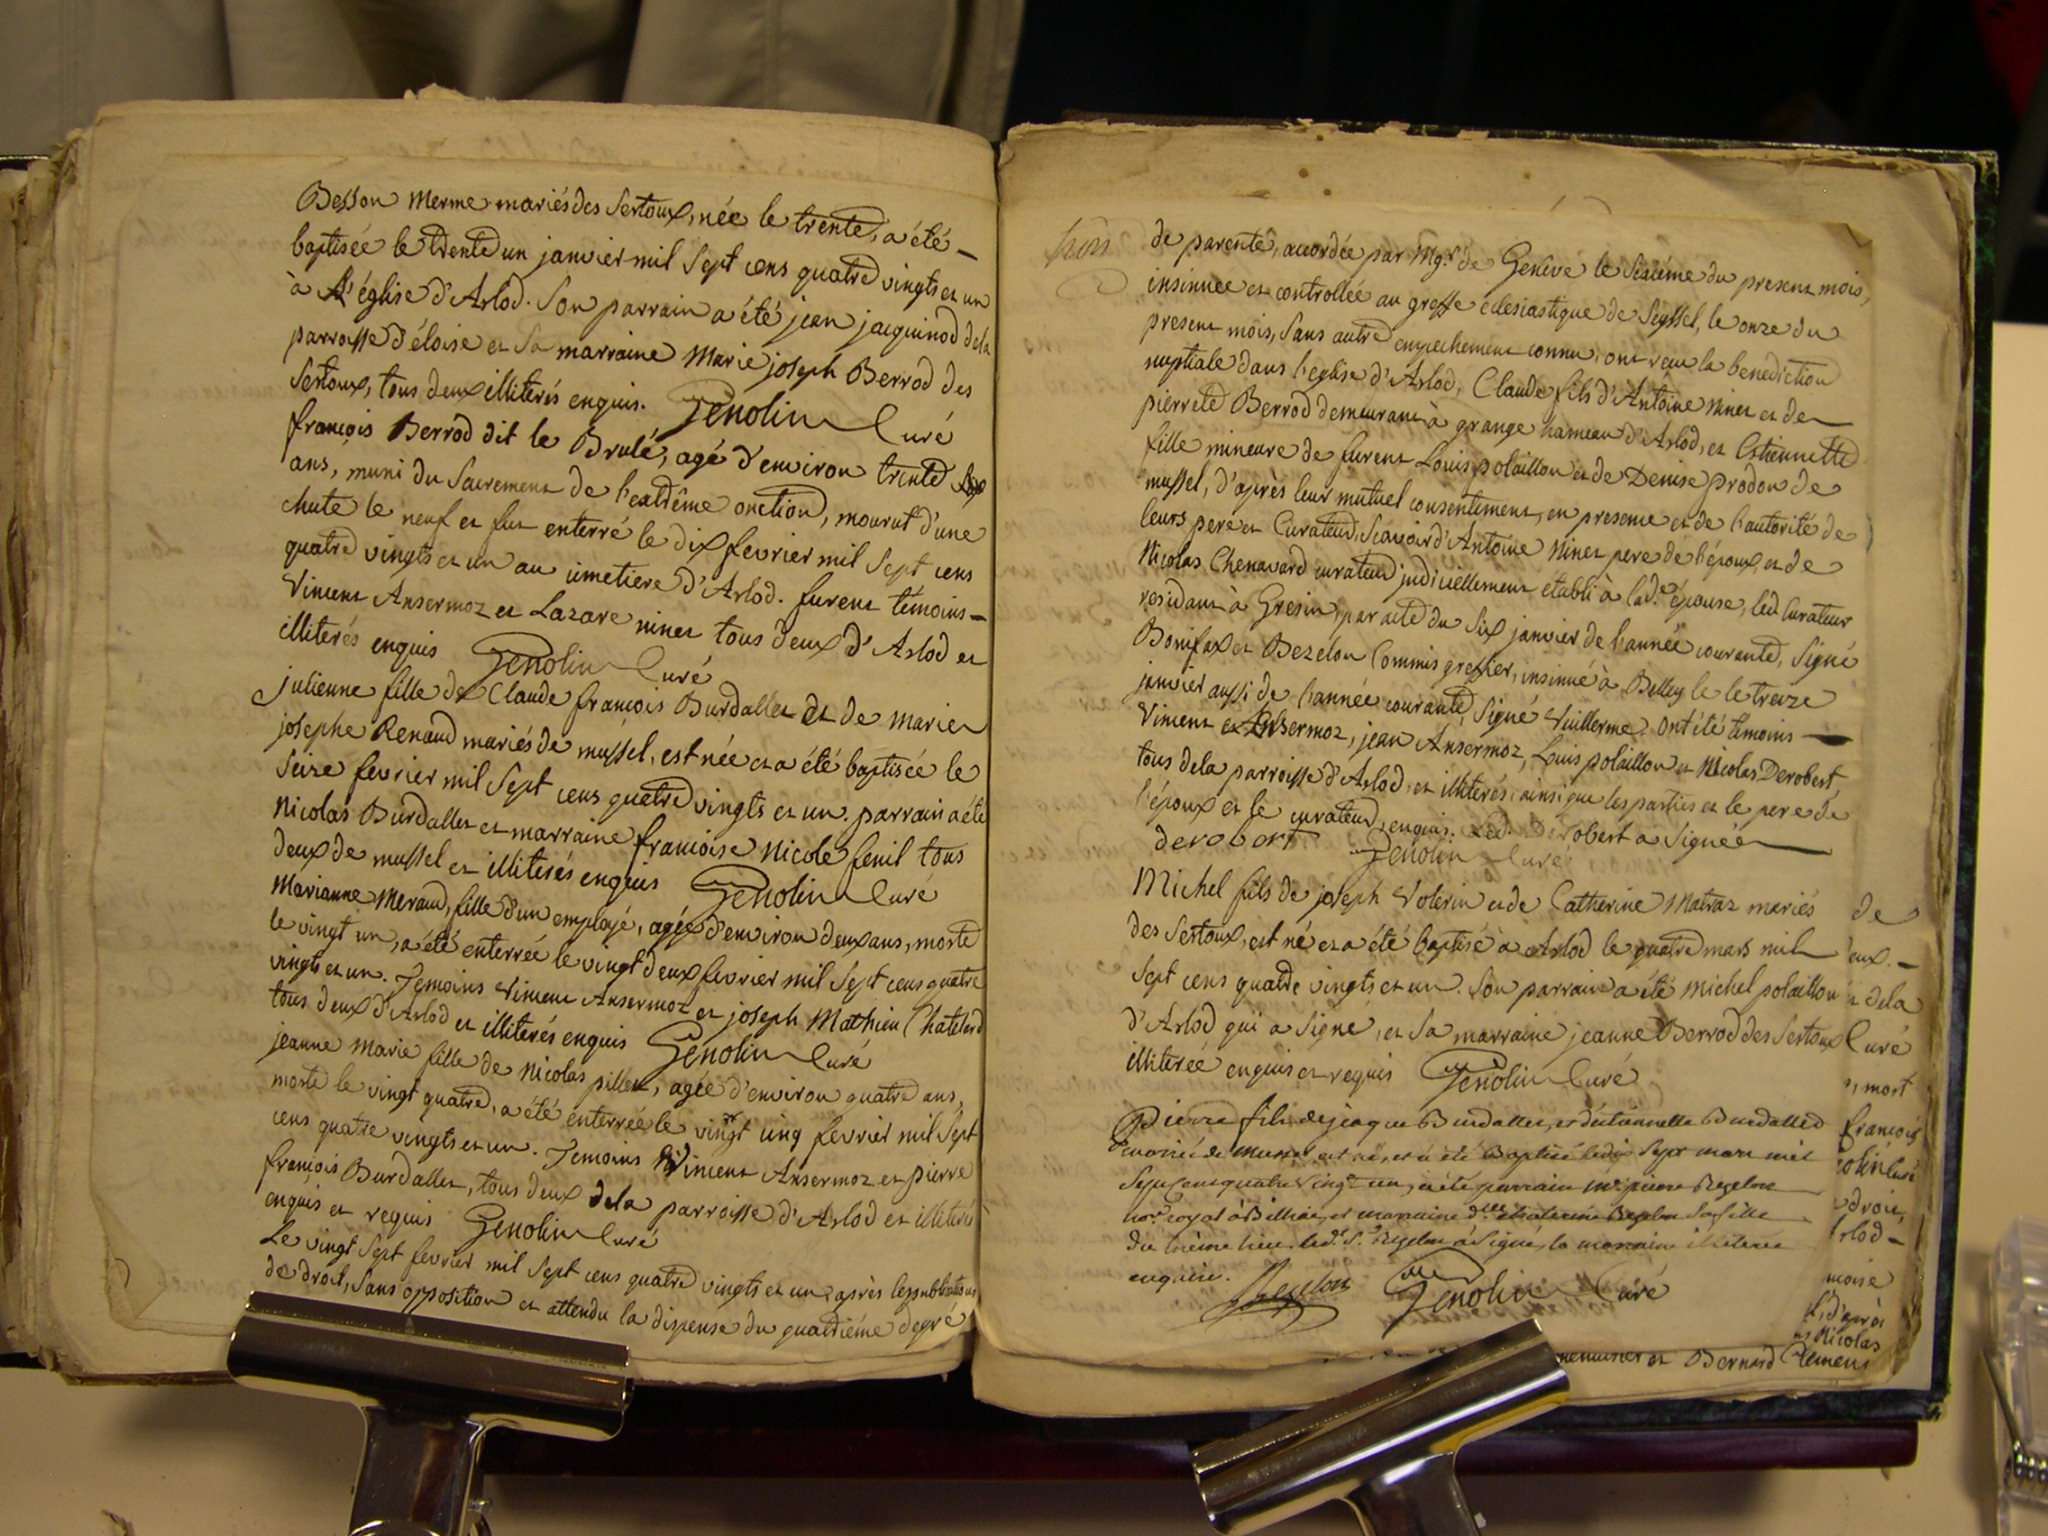 Besson Merme mariés des Sertoux, née le trente, a été
baptisée le trente un janvier mil sept cens quatre vingts et un
à l'église d'Arlod. Son parrain a été jean jacquinod dela
parroisse d'éloise et Sa marraine Marie joseph Berrod des
Sertoux, tous deux illiterés enquis. Genolin Curé
françois Berrod dit le Brulé, agé d'environ trente six
ans, muni du Sacrement de l'extrême onction, mourut d'une
chute le neuf et fut enterré le dix fevrier mil Sept cens
quatre vingts et un au cimetiere d'Arlod. furent témoins
Vincent Ansermoz et Lazare ninet tous deux d'Arlod et
illiterés enquis Genolin Curé
julienne fille de Claude françois Burdallet et de marie
josephe Renaud mariés de mussel, est née et a été baptisée le
Seize fevrier mil Sept cens quatre vingts et un. parrain a été
Nicolas Burdallet et marraine françoise Nicole fenil tous
deux de mussel et illiterés enquis Genolin Curé
Marianne Meraud, fille d'un employé, agée d'environ deux ans, morte
le vingt un, a été enterrée le vingt deux fevrier mil Sept cens quatre
vingts et un. Temoins Vincent Ansermoz et joseph Mathieu Chatelard
tous deux d'Arlod et illiterés enquis Genolin Curé
jeanne Marie fille de Nicolas pillet, agée d'environ quatre ans,
morte le vingt quatre, a été enterrée le vingt cinq fevrier mil Sept
cens quatre vingts et un. Temoins Vincent Ansermoz et pierre
françois Burdallet, tous deux dela parroisse d'Arlod et illiterés
enquis et requis Genolin Curé
Le vingt Sept fevrier mil Sept cens quatre vingts et un, après les publications
de droit, Sans opposition et attendu la dispense du quatriéme degré
de parenté, accordée par Mgr de Genéve le Sixiéme du present mois,
insinuée et controllée au greffe éclesiastique de Seyssel, le onze du
present mois, Sans autre empechement connu, ont reçu la benediction
nuptiale dans l'eglise d'Arlod, Claude fils d'Antoine Ninet et de
pierrete Berrod demeurant à grange hameau d'Arlod, et Estiennette
fille mineure de furent Louis polaillon et de Denise prodon de
mussel, d'après leur mutuel consentement, en presence et de l'autorité de
leurs pere et Curateur, Sçavoir d'Antoine Ninet pere de l'époux, et de
Nicolas Chenavard curateur judiciellement etabli à lad.e épouse, led Curateur
residant à Gresin, par acte du Six janvier de l'année courante, Signé
Bonifax et Bezelon Commis greffier, insinué à Belley le le treize
janvier aussi de l'année courante, Signé Vuillerme. Ont été témoins
Vincent Ansermoz, jean Ansermoz, Louis polaillon et Nicolas Derobert,
tous dela parroisse d'Arlod, et illiterés, ainsi que les parties et le pere de
l'époux et le curateur, enquis. Led. Derobert a Signé
derobert Genolin Curé
Michel fils de joseph Volerin et de Catherine Matraz mariés
des Sertoux, est né et a été baptisé à Arlod le quatre mars mil
Sept cens quatre vingts et un. Son parrain a été Michel polaillon
d'Arlod qui a Signé, et Sa marraine jeanne Berrod des Sertoux
illiterée enquis et requis Genolin Curé
Pierre fils de jacque Burdallet, et d'Estiennette Burdallet
mariés de mussel est né, et a été Baptisé le dix Sept mars mil
Sept Cens quatre Vingt un, a été parrain me pierre Bezelon
nore royal à Billiat, et marraine dlle Catherine Bezelon Sa fille
du même lieu, led. Sr. Bezelon a Signé, la marraine illiterée
enquise. Bezelon Genolin Curé
de
eux.
dela
Curé
, mort
françois
Curé
droit,
rlod
d'après
Nicolas
et Bernard Clement